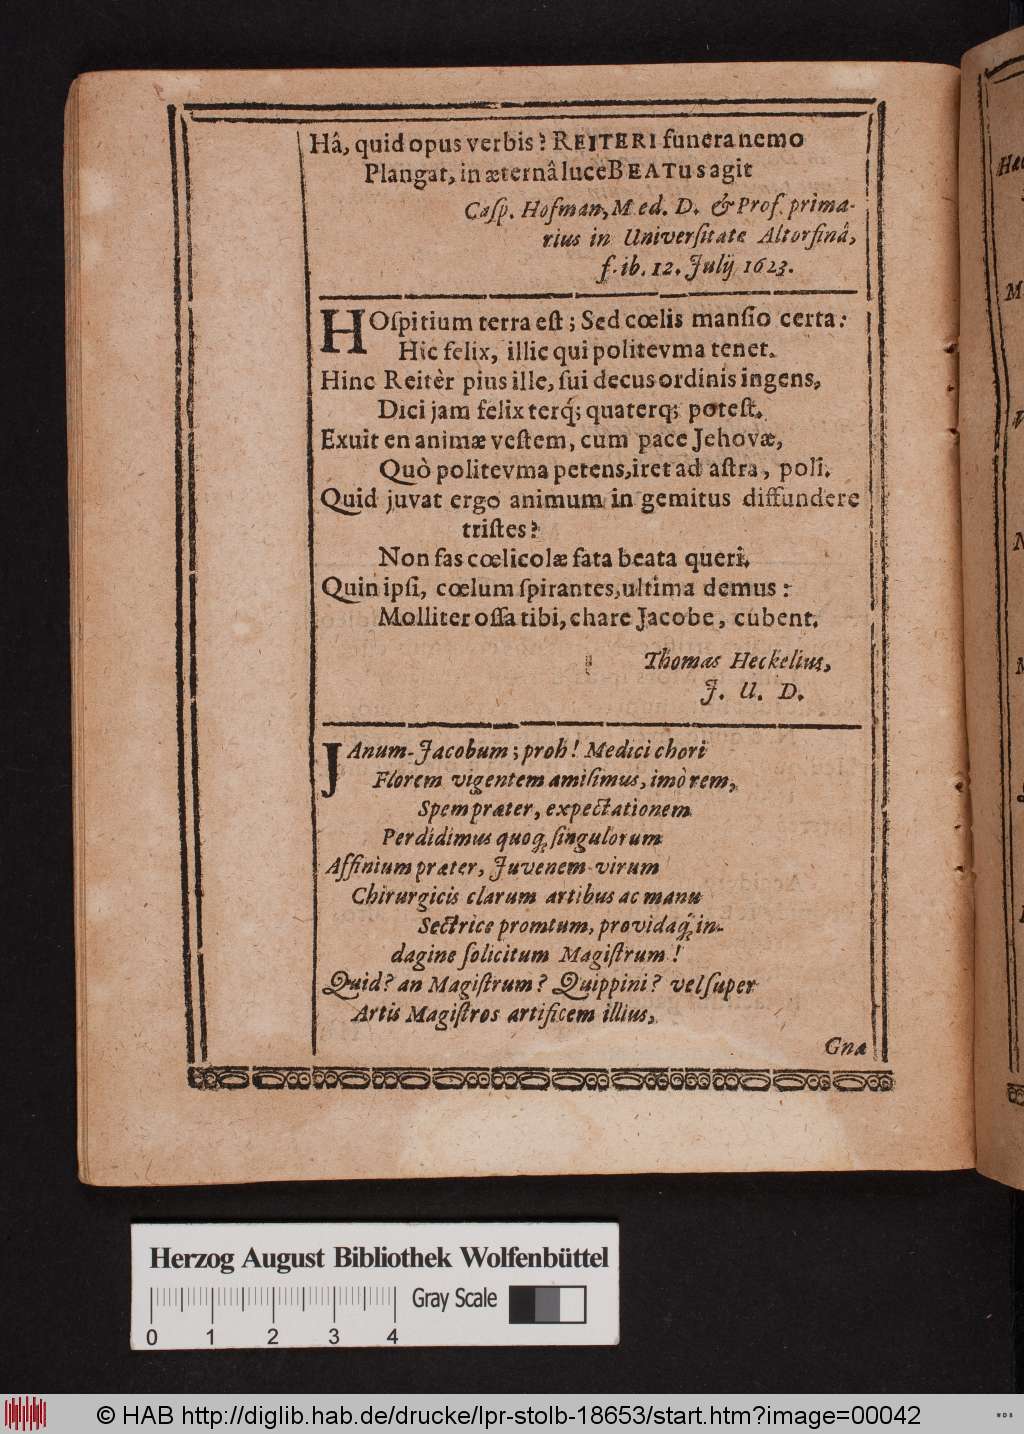 Hâ, quid opus verbis? REITERI funera nemo
Plangat, in æternâ luce BEATus agit
Caſp. Hofman, Med. D. & Prof. prima-
rius in Univerſitate Altorfinâ,
f. ib. 12. Julij 1623.
HOſpitium terra eſt; Sed cœlis manſio certa:
Hic felix, illic qui politevma tenet.
Hinc Reitèr pius ille, ſui decus ordinis ingens,
Dici jam felix terq́; quaterq; poteſt.
Exuit en animæ veſtem, cum pace Jehovæ,
Quò politevma petens, iret ad aſtra, poli.
Quid juvat ergo animum in gemitus diffundere
triſtes?
Non fas cœlicolæ fata beata queri.
Quin ipſi, cœlum ſpirantes, ultima demus:
Molliter oſſa tibi, chare Jacobe, cubent.
Thomas Heckelius,
J. U. D.
JAnum-Jacobum; proh! Medici chori
Florem vigentem amiſimus, imò rem,
Spem præter, expectationem
Perdidimus quoq́ ſingulorum
Affinium præter, Juvenem-virum
Chirurgicis clarum artibus ac manu
Sectrice promtum, providaq́ in-
dagine ſolicitum Magiſtrum!
Quid? an Magiſtrum? Quippini? vel ſuper
Artis Magiſtros artificem illius,
Gna
Hac
M
Herzog August Bibliothek Wolfenbüttel
0 1 2 3 4 Gray Scale
© HAB http://diglib.hab.de/drucke/lpr-stolb-18653/start.htm?image=00042